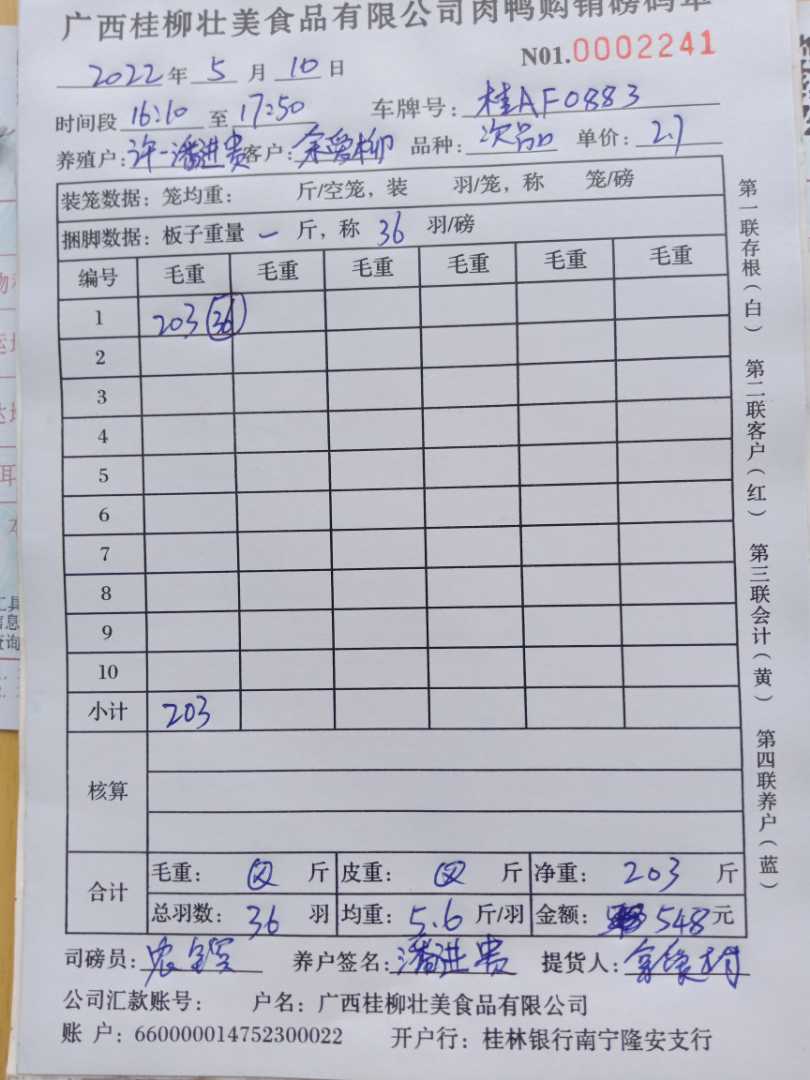 广西桂柳壮美食品有限公司肉鸭购销磅码单
2022年 5 月 10 日 N01.0002241
时间段 16:10 至 17:50 车牌号: 桂AF0883
养殖户: 许一潘进贵 客户: 余爱柳 品种: 次品 单价: 2.7
装笼数据: 笼均重: 斤/空笼, 装 羽/笼, 称 笼/磅
捆脚数据: 板子重量 一 斤, 称 36 羽/磅
编号 毛重 毛重 毛重 毛重 毛重 毛重
1 203 36
2
3
4
5
6
7
8
9
10
小计 203
核算
合计 毛重: 斤 皮重: 斤 净重: 203 斤
总羽数: 36 羽 均重: 5.6 斤/羽 金额: 548元
司磅员: 养户签名: 潘进贵 提货人:
公司汇款账号: 户名: 广西桂柳壮美食品有限公司
账 户: 660000014752300022 开户行: 桂林银行南宁隆安支行
第一联存根(白) 第二联客户(红) 第三联会计(黄) 第四联养户(蓝)